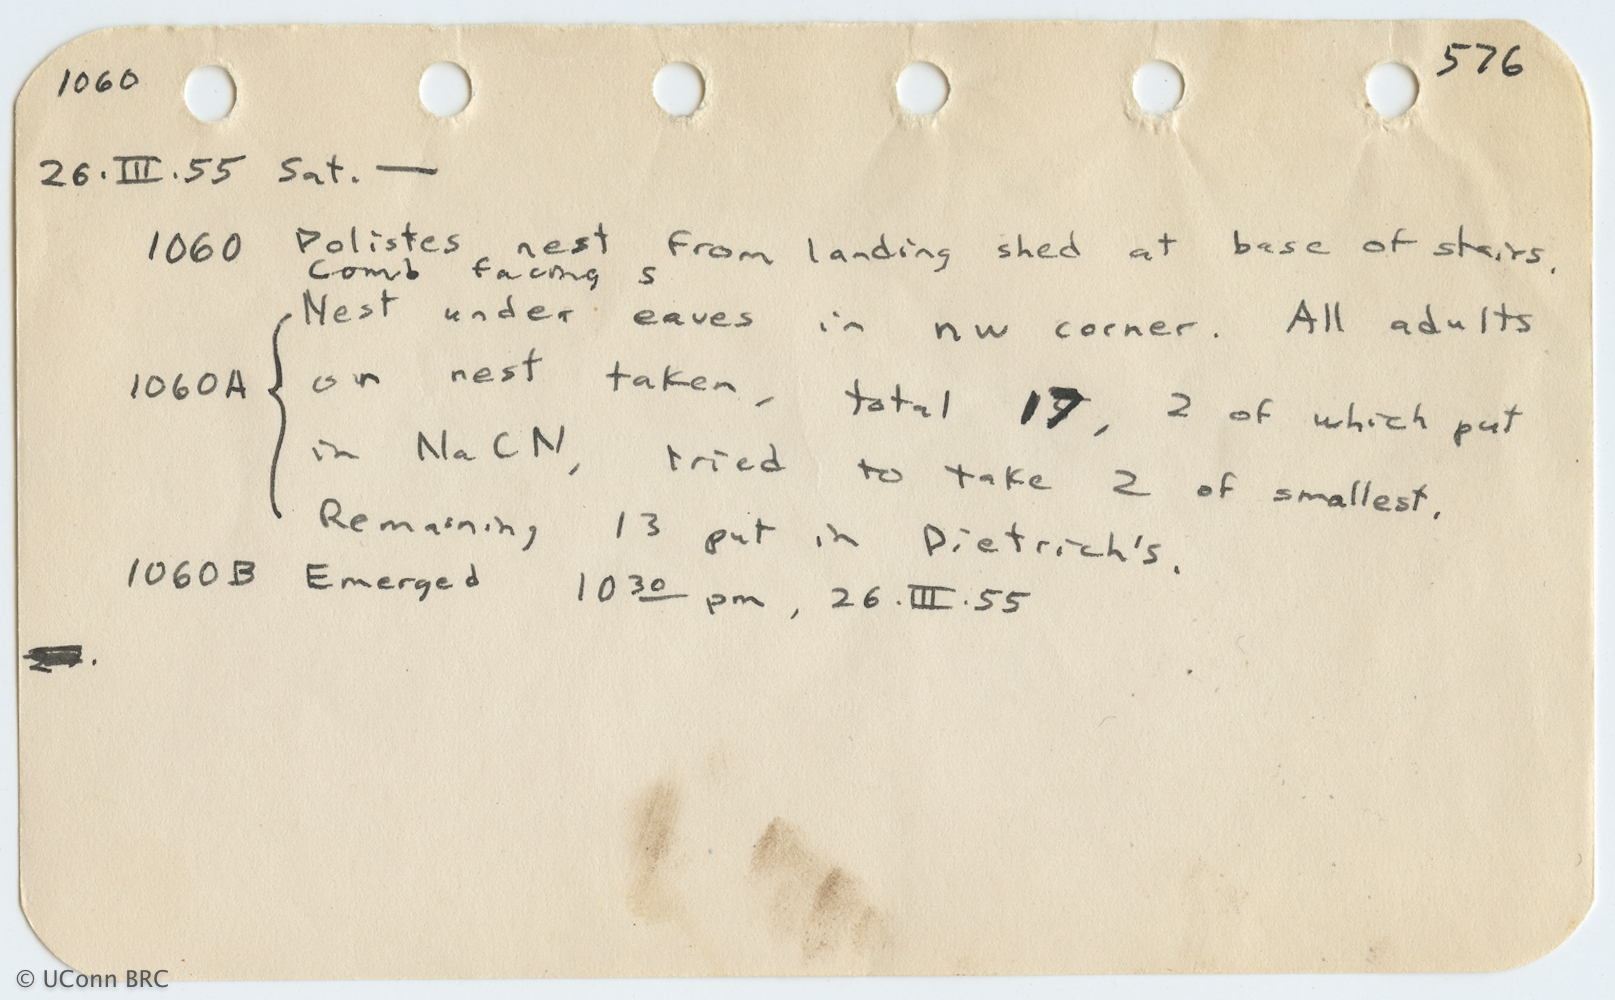 1060 576
26.III.55 Sat. —
1060 Polistes nest from landing shed at base of stairs.
Comb facing s
Nest under eaves in nw corner. All adults
1060A on nest taken, total 17, 2 of which put
in NaCN, tried to take 2 of smallest.
Remaining 13 put in Dietrich's.
1060B Emerged 10 30 pm, 26.III.55
© UConn BRC